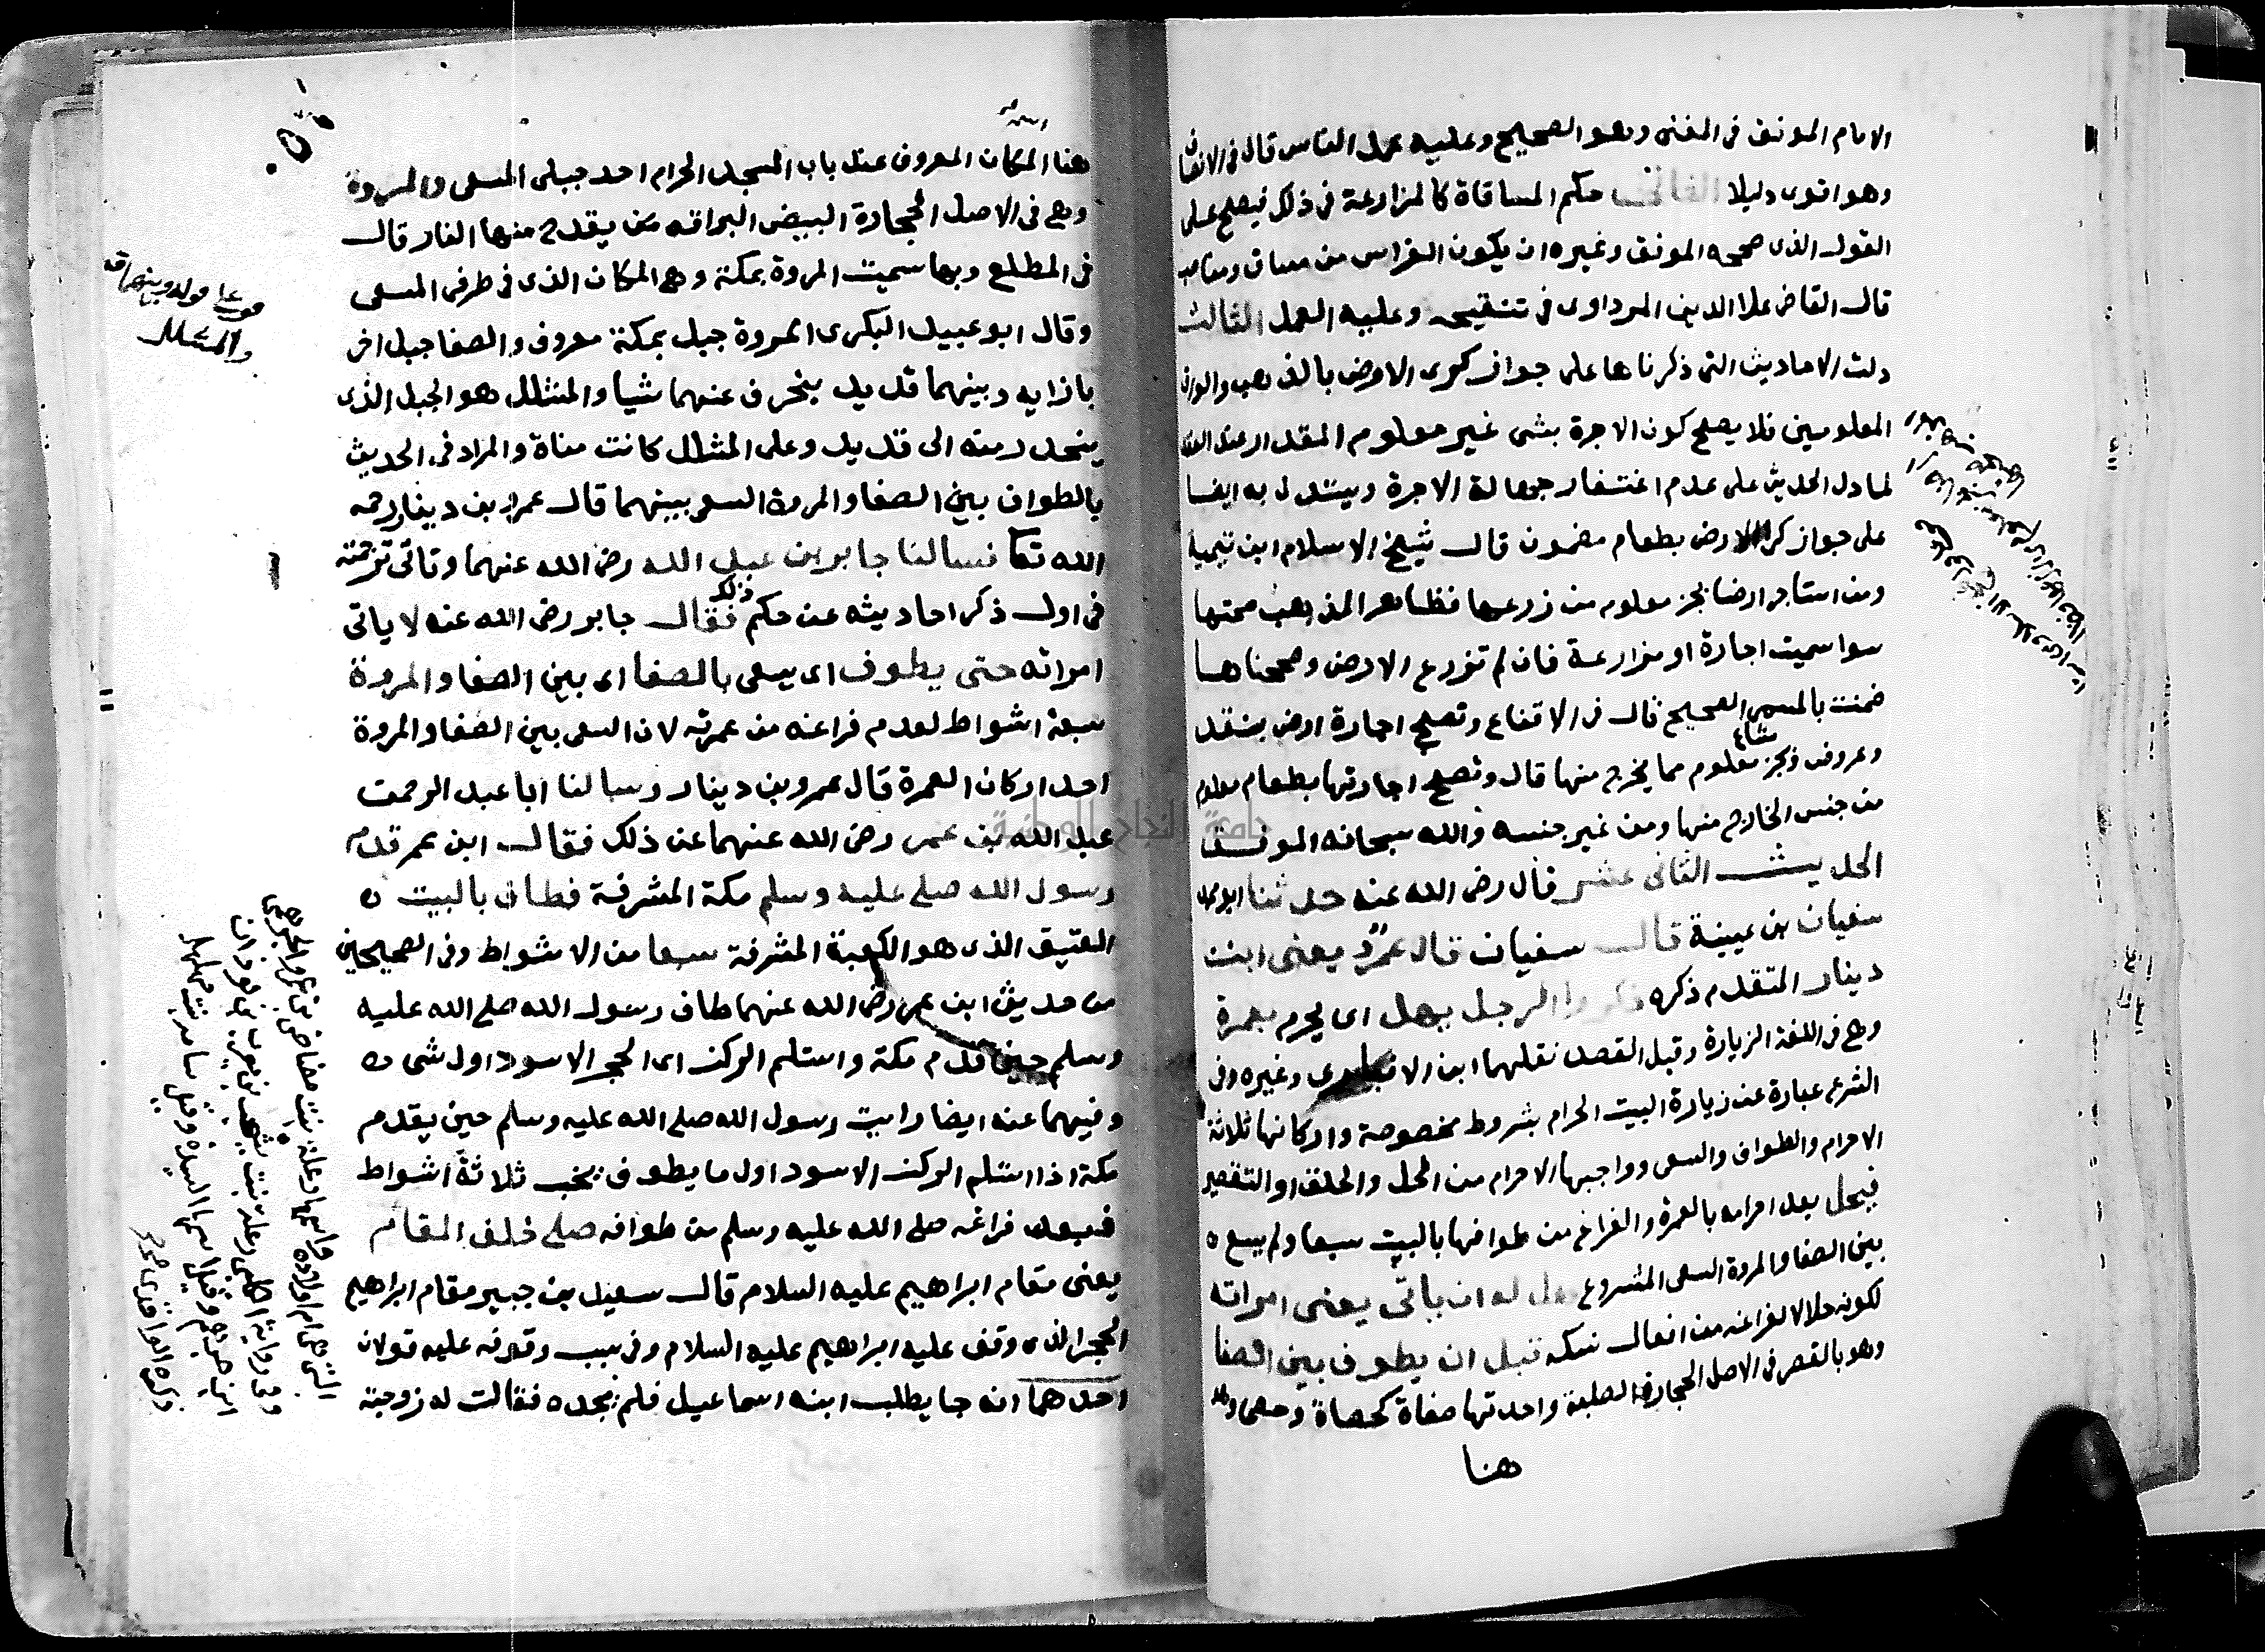 الامام الموفق فى المغنى وهو الصحيح وعليه عمل الناس قال فى الانصاف
وهو اقوى دليلا الثانى حكم المساقاة كالمزارعة فى ذلك فيصلح على
القول الذى صححه الموفق وغيره ان يكون الغراس من مساق ومناصب
قال القاضى علا الدين المرداوى فى تنقيحه وعليه العمل الثالث
دلت الاحاديث التى ذكرناها على جواز كرى الارض بالذهب والورق
المعلومين فلا يصلح كون الاجرة بشى غير معلوم المقدار عند العقد
لما دل الحديث على عدم اغتفار جهالة الاجرة ويستدل به ايضا
على جواز كرا الارض بطعام مضمون قال شيخ الاسلام ابن تيمية
ومن استاجر ارضا بجز معلوم من زرعها فظاهر المذهب صحتها
سوا سميت اجارة او مزارعة فان لم تزرع الارض وصححناها
ضمنت بالمسمى الصحيح قال فى الاقناع وتصلح اجارة ارض بنقد
وعروض وبجز مشاع معلوم مما يخرج منها قال وتصلح اجارتها بطعام معلوم
من جنس الخارج منها ومن غير جنسه والله سبحانه الموفق
الحديث الثانى عشر قال رضى الله عنه حدثنا ابو محمد
سفيان بن عيينة قال سفيان قال عمرو يعنى ابن
دينار المتقدم ذكره ذكروا الرجل يهل اى يحرم بعمرة
وهى فى اللغة الزيارة وقيل القصد نقلهما ابن الانبارى وغيره وفى
الشرع عبارة عن زيارة البيت الحرام بشروط مخصوصة واركانها ثلاثة
الاحرام والطواف والسعى وواجبها الاحرام من الحل والحلق او التقصير
فيحل بعد احرامه بالعمرة والفراغ من طوافها بالبيت سبعا ولم يسع
بين الصفا والمروة السعى المشروع هل له ان ياتى يعنى امراته
لكونه حلالا لفراغه من افعال نسكه قبل ان يطوف بين الصفا
وهو بالقصر فى الاصل الحجارة الصلبة واحدتها صفاة كحصاة وحصى وهو
هنا
هنا المكان المعروف عند باب المسجد الحرام احد جبلى المسعى والمروة
وهى فى الاصل الحجارة البيض البراقه من يقدح منها النار قال
فى المطلع وبها سميت المروة بمكة وهى المكان الذى فى طرف المسعى
وقال ابو عبيد البكرى المروة جبل بمكة معروف والصفا جبل اخر
بازايه وبينهما قديد ينحرف عنهما شيا والمشلل هو الجبل الذى
ينحدر منه الى قديد وعلى المشلل كانت مناة والمراد فى الحديث
بالطواف بين الصفا والمروة السعى بينهما قال عمرو بن دينار رحمه
الله تعا فسالنا جابر بن عبد الله رضى الله عنهما وتاتى ترجمته
فى اول ذكر احاديثه عن حكم ذلك فقال جابر رضى الله عنه لا ياتى
امراته حتى يطوف اى يسعى بالصفا اى بين الصفا والمروة
سبعة اشواط لعدم فراغه من عمرته لان السعى بين الصفا والمروة
احد اركان العمرة قال عمرو بن دينار وسالنا ابا عبد الرحمن
عبد الله بن عمر رضى الله عنهما عن ذلك فقال ابن عمر قدم
رسول الله صلى عليه وسلم مكة المشرفة فطاف بالبيت
العتيق الذى هو الكعبة المشرفة سبعا من الاشواط وفى الصحيحين
من حديث ابن عمر رضى الله عنهما طاف رسول الله صلى الله عليه
وسلم حين قدم مكة واستلم الركن اى الحجر الاسود اول شى
وفيهما عنه ايضا رايت رسول الله صلى الله عليه وسلم حين يقدم
مكة اذا استلم الركن الاسود اول ما يطوف يخب ثلاثة اشواط
فبعد فراغه صلى الله عليه وسلم من طوافه صلى خلف المقام
يعنى مقام ابراهيم عليه السلام قال سعيد بن جبير مقام ابراهيم
الحجر الذى وقف عليه ابراهيم عليه السلام وفى سبب وقوفه عليه قولان
احدهما انه جا يطلب ابنه اسماعيل فلم يجده فقالت له زوجته
والمشلل
جامعة النجاح الوطنية